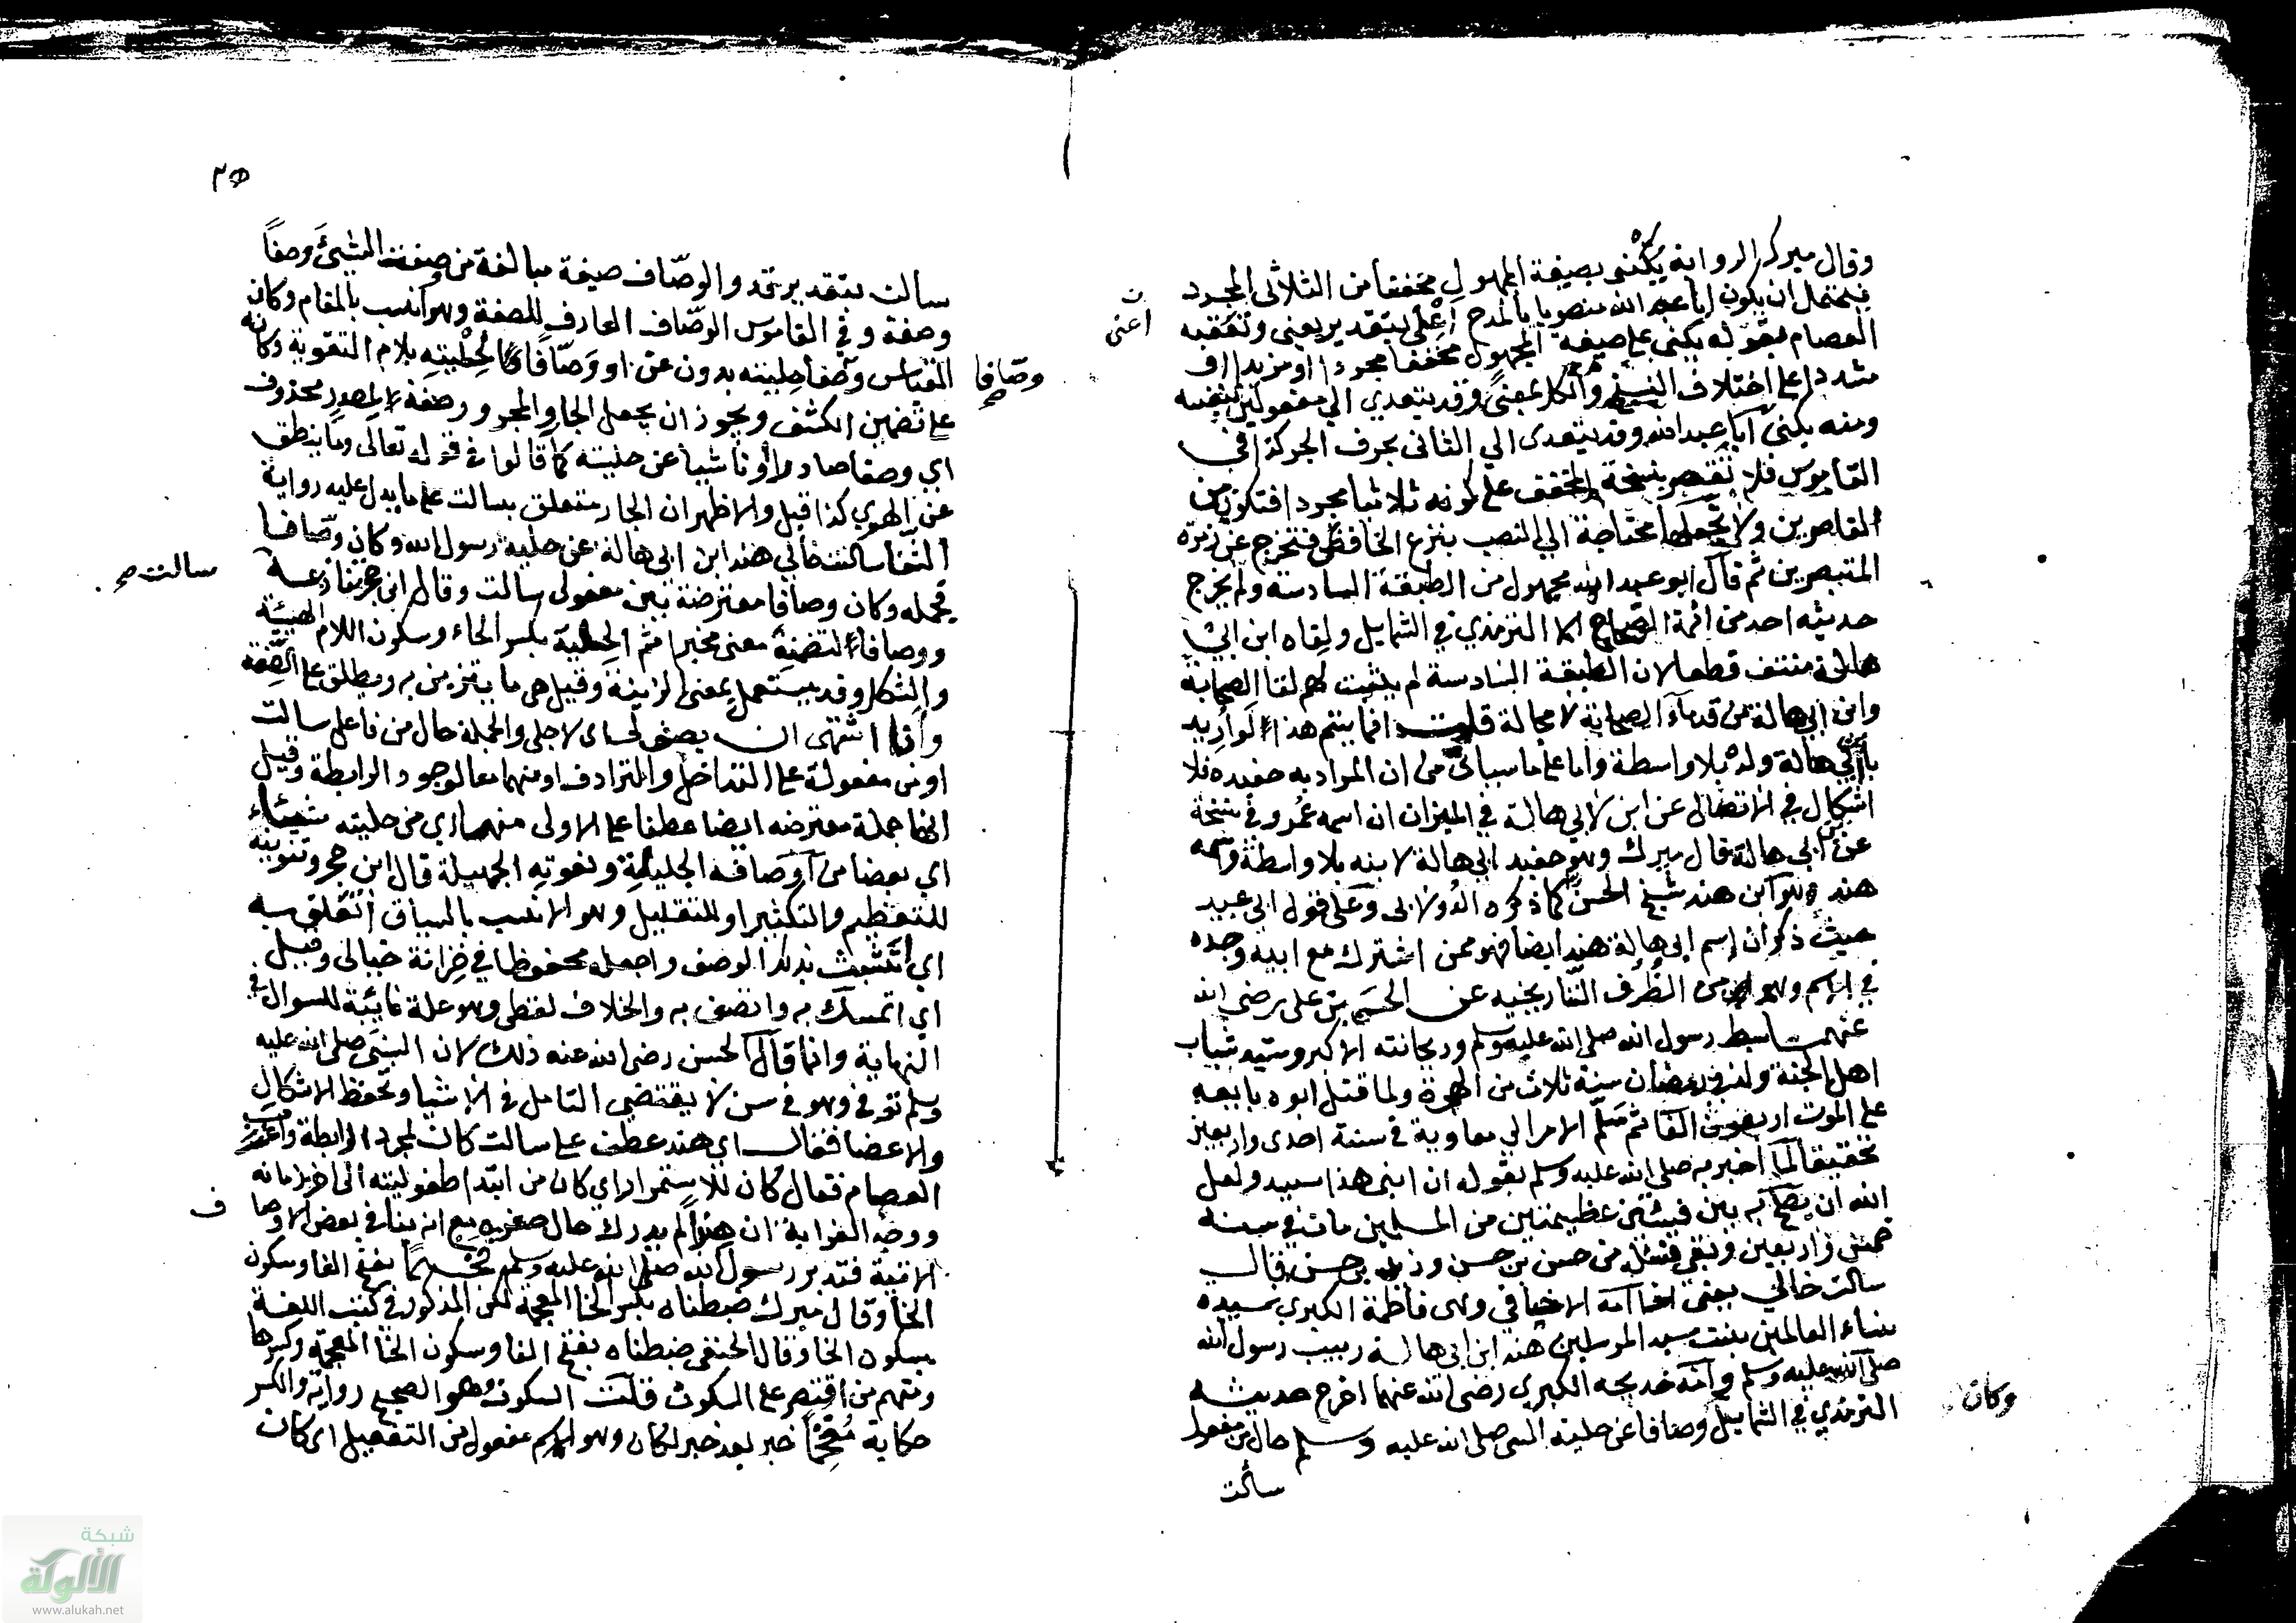 وقال ميرك الرواية يكنى بصيغة المجهول مخففا من الثلاثى المجرد
فيحتمل ان يكون ابا عبد الله منصوبا بالمدح بتقدير يعنى وتعقبه
اعنى
العصام بقوله يكنى على صيغة المجهول مخففا مجردا او مزيدا او
مشددا على اختلاف النسخ والكل بمعنى وقد يتعدى الي مفعولين بنفسه
ومنه يكنى ابا عبد الله وقد يتعدى الي الثانى بحرف الجر كذا فى
القاموس فلا تقصر بنسخة المخفف على كونه ثلاثيا مجردا فتكون من
القاصرين ولا تجعلها محتاجة الي النصب بنزع الخافض فتخرج عن زمرة
المتبصرين ثم قال ابو عبد الله مجهول من الطبقة السادسة ولم يخرج
حديثه احد من ائمة الصحاح الا الترمذي في الشمايل ولقاه ابن ابي
هالة منتف قطعا لان الطبقة السادسة لم يثبت لهم لقا الصحابة
وابن ابي هالة من قدماء الصحابة لا محالة قلت انما يتم هذا لو اريد
بابن ابي هالة ولده بلا واسطة واما على ما سياتى من ان المراد به حفيده فلا
اشكال في الاتصال عن ابن لابي هالة في الميزان ان اسمه عمرو وفي نسخة
عن ابن ابي هالة قال ميرك وهو حفيد ابي هالة لا ابنه بلا واسطة واسمه
هند وهو ابن هند شيخ الحسن كما ذكره الدولابى وعلى قول ابى عبيد
حيث ذكر ان اسم ابي هالة هند ايضا فهو ممن اشترك مع ابيه وجده
في الاسم وهو من الظرف التاريخيه عن الحسن بن على رضى الله
عنهما سبط رسول الله صلى الله عليه وسلم وريحانته الاكبر وسيد شباب
اهل الجنة ولد في رمضان سنة ثلاث من الهجرة ولما قتل ابوه بايعه
على الموت اربعون الفا ثم سلم الامر الي معاوية في سنة احدى واربعين
تحقيقا لما اخبر به صلى الله عليه وسلم بقوله ان ابنى هذا سيد ولعل
الله ان يصلح به بين فيئتين عظيمتين من المسلمين مات في سنة
خمس واربعين وبقى نسله من حسن بن حسن وزيد بن حسن قال
سالت خالي يعنى اخا امه الاخيافي وهى فاطمة الكبرى سيدة
نساء العالمين بنت سيد المرسلين هند ابن ابي هالة ربيب رسول الله
صلى الله عليه وسلم وامه خديجه الكبرى رضى الله عنهما اخرج حديثه
وكان
الترمذي في الشمايل وصافا عن حلية النبى صلى الله عليه وسلم حال من مفعول
سألت
سالت بتقدير قد والوصّاف صيغة مبالغة من وصفت الشيئ وصفا
وصفة و في القاموس الوصّاف العارف للصفة وهو انسب بالمقام وكان
القياس وصّافا حليته بدون عن او وَصّافًا لحليته بلام التقوية وكانه
وصّافا صح
على تضمين الكشف ويجوز ان يجعل الجار والمجرور صفة لمصدر محذوف
اي وصفا صادرا او ناشيا عن حليته كما قالوا في قوله تعالى وما ينطق
عن الهوي كذا قيل والاظهر ان الجار متعلق بسالت على ما يدل عليه رواية
الشفا سالت خالي هند ابن ابى هالة عن حلية رسول الله وكان وصّافا
فجمله وكان وصافا معترضة بين مفعولى سالت وقال ابن حجر
سالت صح
ووصافا لتضمنه معنى مخبرا ثم الحلية بكسر الحاء وسكون اللام الهيئة
والشكل وقد يستعمل بمعنى الزاينة وقيل هى ما يتزين به ويطلق على الصفة
وانا اشتهى ان يصف لى اى لاجلى والجملة حال من فاعل سالت
او من مفعولة على التداخل والترادف او منهما معا لوجود الرابطة وقيل
انها جملة معترضه ايضا عطفا على الاولى منها اي من حليته شيئا
اي بعضا من اوصافه الجليلة ونعوته الجميلة قال ابن حجر وتنوينه
للتعظيم والتكثير او للتقليل وهو الانسب بالسياق اتعلق به
اي اتشبث بذلك الوصف واجعله محفوظا في خزانة خيالى وقيل
اي اتمسك به واتصف به والخلاف لفظى وهو علة غائية للسوال في
النهاية وانما قال الحسن رضى الله عنه ذلك لان النبى صلى الله عليه
وسلم توفى وهو في سن لا يقتضى التامل في الاشيا وتحفظ الاشكال
والاعضا فقال اى هند عطف على سالت كان لمجرد الرابطة
العصام فقال كان للاستمرار اي كان من ابتدا طفوليته الى اخر زمانه
ووجه الغرابة ان هندا لم يدرك حال صغره مع انه ينافى بعض الاوصا
ف
الاتية فتدبر رسول الله صلى الله عليه وسلم فخما بفتح الفا وسكون
الخا وقال ميرك ضبطناه بكسر الخا المعجمة لكن المذكور في كتب اللغة
بسكون الخا وقال الحنفى ضبطناه بفتح الفا وسكون الخا المعجمة وكسرها
ومنهم من اقتصر على السكون قلت السكون وهو الصحيح رواية والكسر
حكاية مُفَخَّمًا خبر بعد خبر لكان وهو اسم مفعول من التفعيل اى كان
شبكة
الألوكة
www.alukah.net